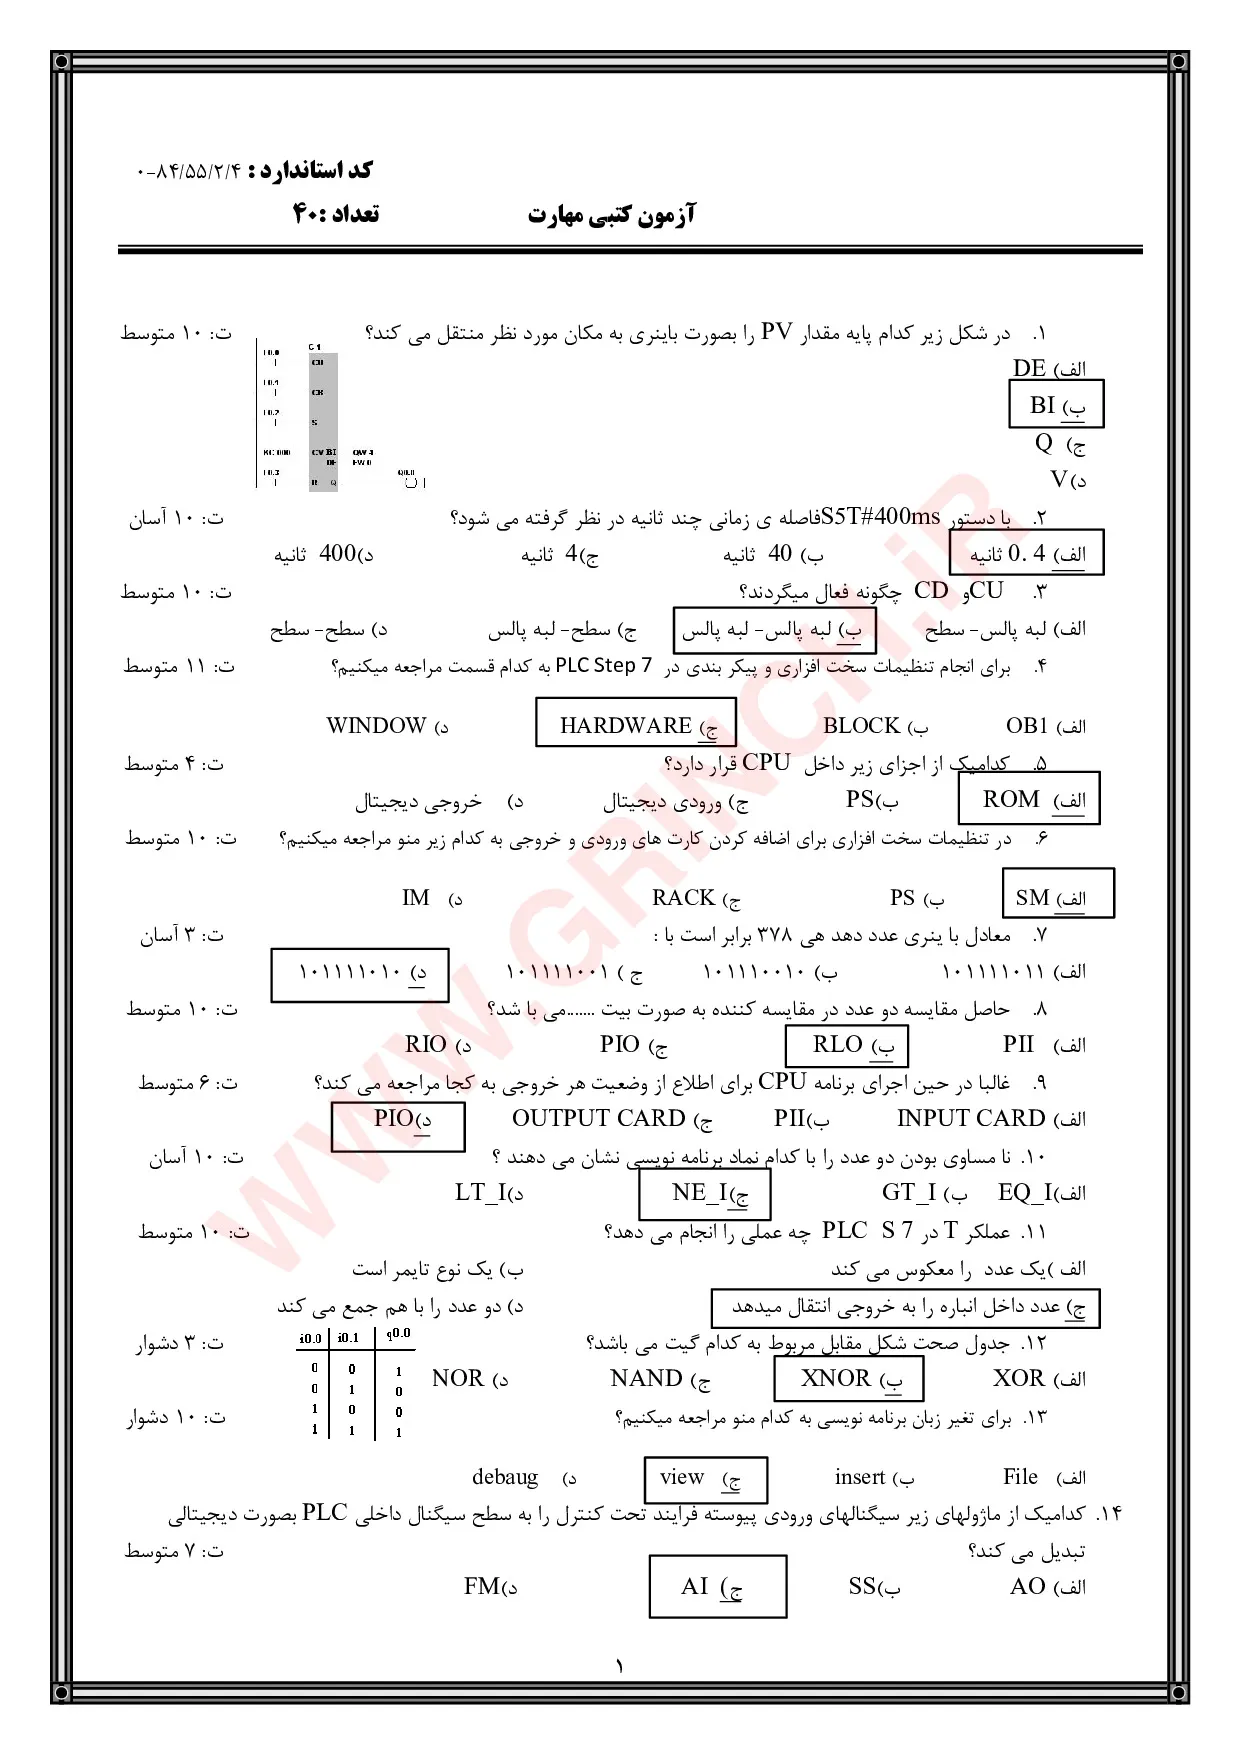 کد استاندارد : ۰-۸۴/۵۵/۲/۴
آزمون کتبی مهارت تعداد :۴۰
۱. در شکل زیر کدام پایه مقدار PV را بصورت باینری به مکان مورد نظر منتقل می کند؟ ت: ۱۰ متوسط
الف) DE
ب) BI
ج) Q
د)V
I0.0
CU
I0.1
I0.2
S
CV BI QW 4
DE FW 0
I0.3 R Q Q0.0
۲. با دستور S5T#400msفاصله ی زمانی چند ثانیه در نظر گرفته می شود؟ ت: ۱۰ آسان
الف) 0. 4 ثانیه ب) 40 ثانیه ج)4 ثانیه د)400 ثانیه
۳. CUو CD چگونه فعال میگردند؟ ت: ۱۰ متوسط
الف) لبه پالس- سطح ب) لبه پالس- لبه پالس ج) سطح- لبه پالس د) سطح- سطح
۴. برای انجام تنظیمات سخت افزاری و پیکر بندی در PLC Step 7 به کدام قسمت مراجعه میکنیم؟ ت: ۱۱ متوسط
الف) OB1 ب) BLOCK ج) HARDWARE د) WINDOW
۵. کدامیک از اجزای زیر داخل CPU قرار دارد؟ ت: ۴ متوسط
الف) ROM ب)PS ج) ورودی دیجیتال د) خروجی دیجیتال
۶. در تنظیمات سخت افزاری برای اضافه کردن کارت های ورودی و خروجی به کدام زیر منو مراجعه میکنیم؟ ت: ۱۰ متوسط
الف) SM ب) PS ج) RACK د) IM
۷. معادل با ینری عدد دهد هی ۳۷۸ برابر است با : ت: ۳ آسان
الف) ۱۰۱۱۱۱۰۱۱ ب) ۱۰۱۱۱۰۰۱۰ ج ) ۱۰۱۱۱۱۰۰۱ د) ۱۰۱۱۱۱۰۱۰
۸. حاصل مقایسه دو عدد در مقایسه کننده به صورت بیت .......می با شد؟ ت: ۱۰ متوسط
الف) PII ب) RLO ج) PIO د) RIO
۹. غالبا در حین اجرای برنامه CPU برای اطلاع از وضعیت هر خروجی به کجا مراجعه می کند؟ ت: ۶ متوسط
الف) INPUT CARD ب)PII ج) OUTPUT CARD د)PIO
۱۰. نا مساوی بودن دو عدد را با کدام نماد برنامه نویسی نشان می دهند ؟ ت: ۱۰ آسان
الف)EQ_I ب) GT_I ج)NE_I د)LT_I
۱۱. عملکر T در PLC S 7 چه عملی را انجام می دهد؟ ت: ۱۰ متوسط
الف )یک عدد را معکوس می کند ب) یک نوع تایمر است
ج) عدد داخل انباره را به خروجی انتقال میدهد د) دو عدد را با هم جمع می کند
۱۲. جدول صحت شکل مقابل مربوط به کدام گیت می باشد؟ ت: ۳ دشوار
i0.0 i0.1 q0.0
0 0 1
0 1 0
1 0 0
1 1 1
الف) XOR ب) XNOR ج) NAND د) NOR
۱۳. برای تغیر زبان برنامه نویسی به کدام منو مراجعه میکنیم؟ ت: ۱۰ دشوار
الف) File ب) insert ج) view د) debaug
۱۴. کدامیک از ماژولهای زیر سیگنالهای ورودی پیوسته فرایند تحت کنترل را به سطح سیگنال داخلی PLC بصورت دیجیتالی
تبدیل می کند؟ ت: ۷ متوسط
الف) AO ب)SS ج) AI د)FM
۱
WWW.GRINCH.iR